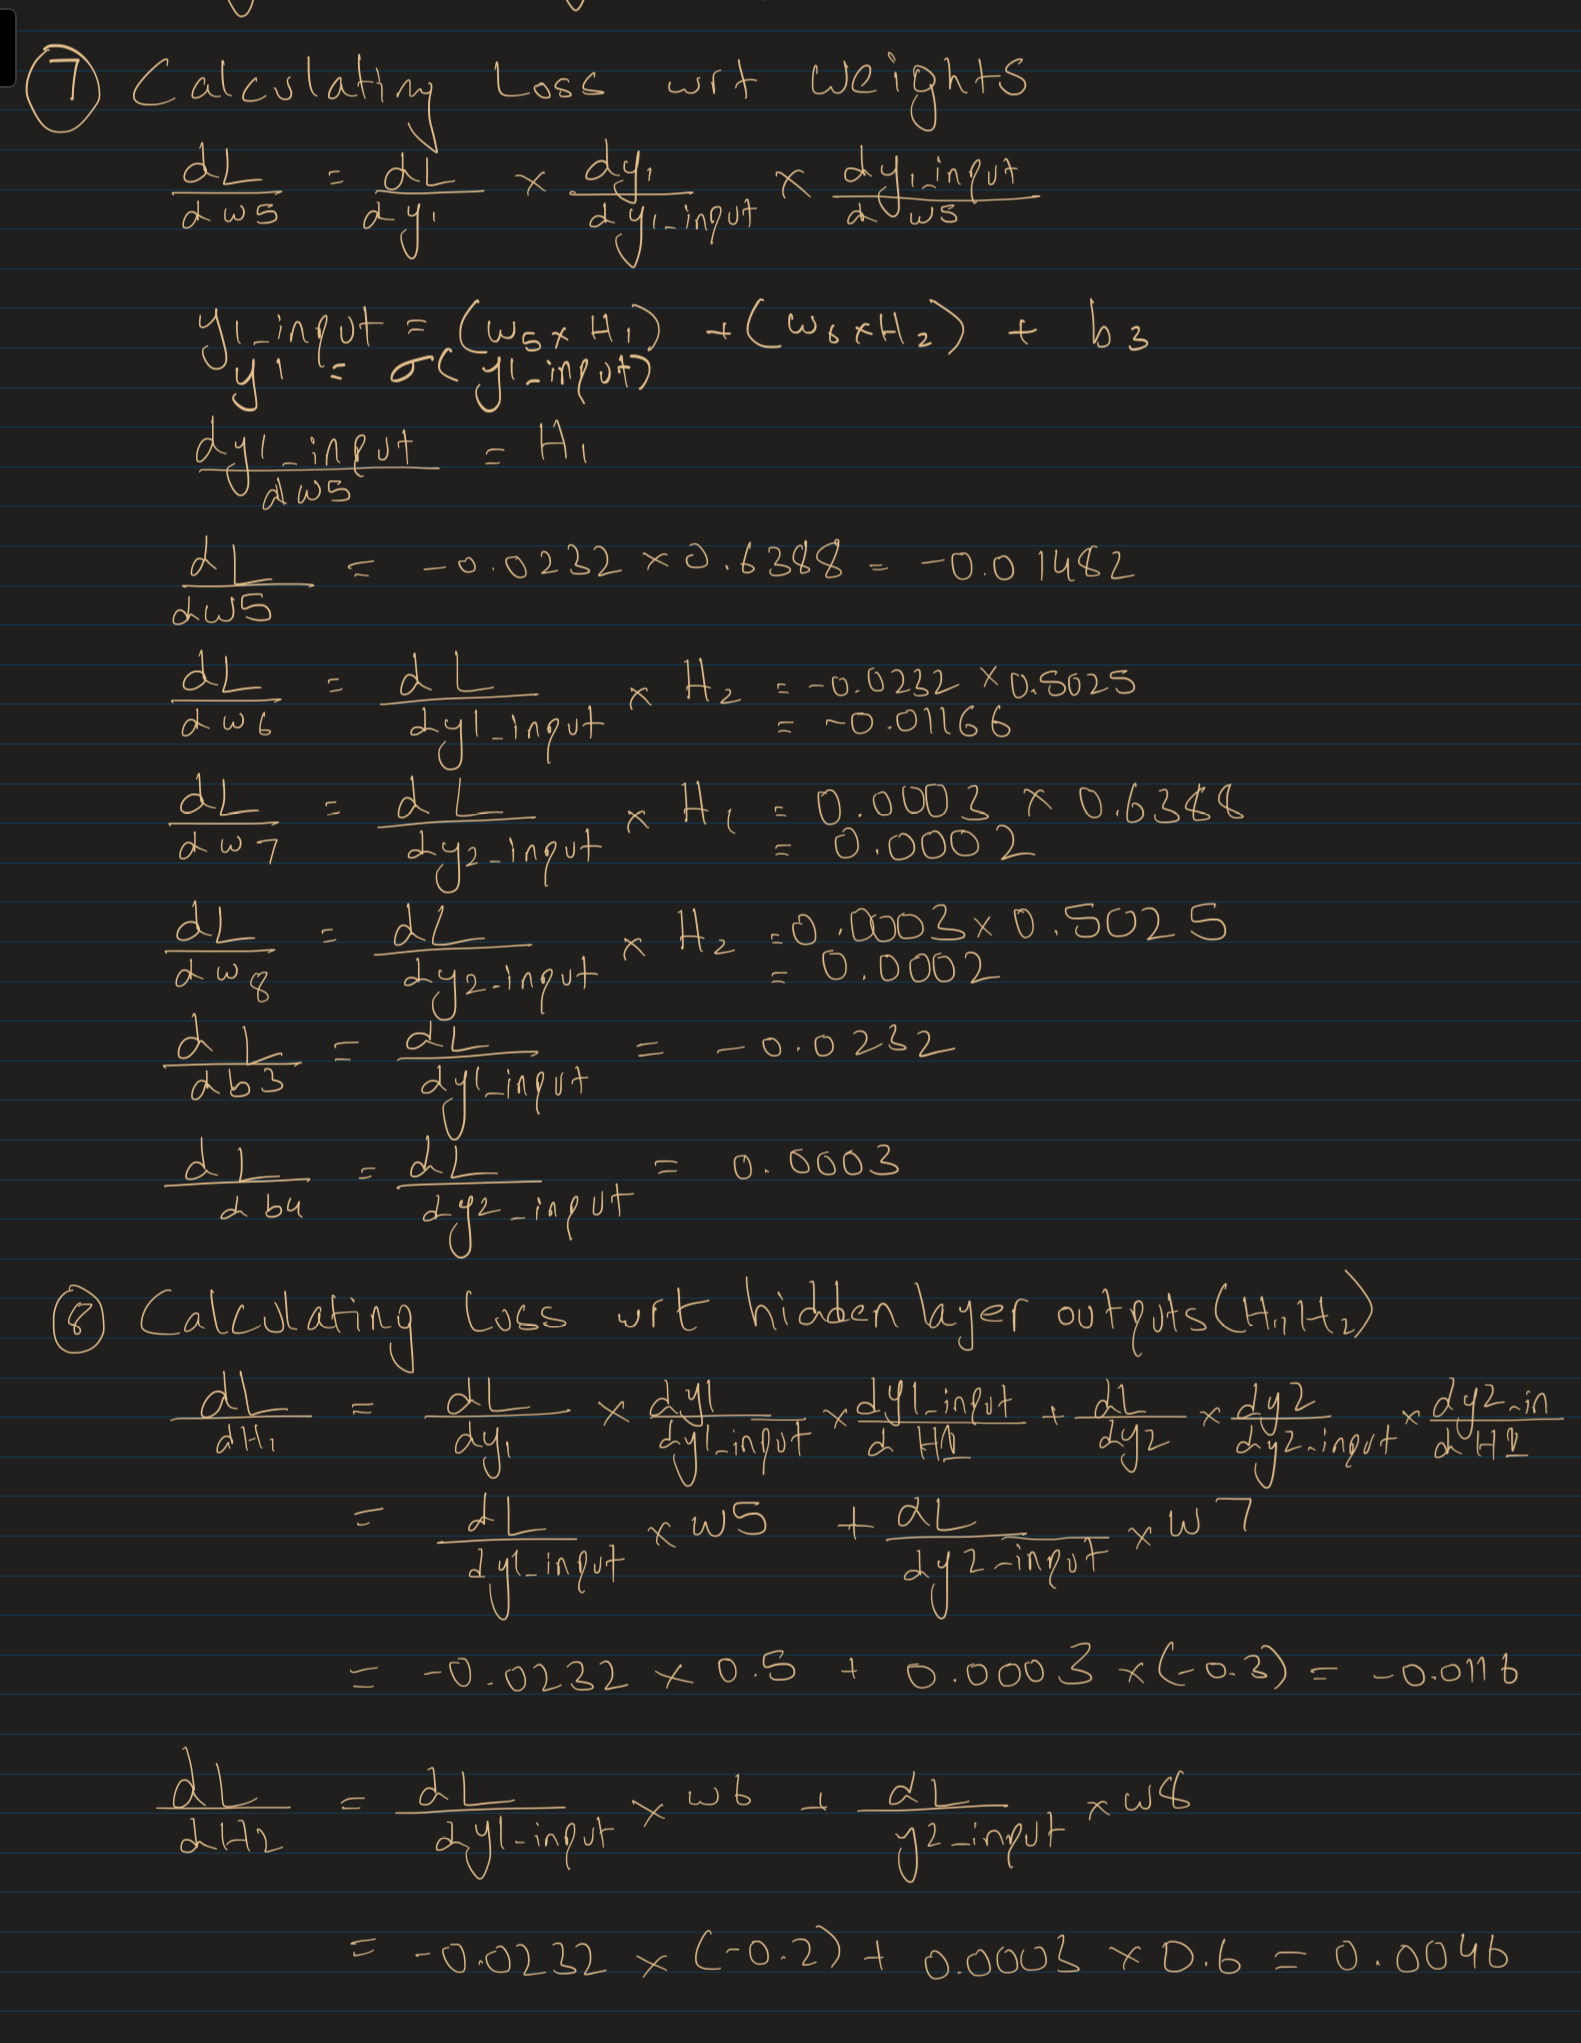 7 Calculating Loss wrt weights
dL/dw5 = dL/dy1 × dy1/dy1_input × dy1_input/dw5
y1_input = (w5 × H1) + (w6 × H2) + b3
y1 = σ(y1_input)
dy1_input/dw5 = H1
dL/dw5 = -0.0232 × 0.6388 = -0.01482
dL/dw6 = dL/dy1_input × H2 = -0.0232 × 0.5025
= -0.01166
dL/dw7 = dL/dy2_input × H1 = 0.0003 × 0.6388
= 0.0002
dL/dw8 = dL/dy2_input × H2 = 0.0003 × 0.5025
= 0.0002
dL/db3 = dL/dy1_input = -0.0232
dL/db4 = dL/dy2_input = 0.0003
8 Calculating Loss wrt hidden layer outputs (H1, H2)
dL/dH1 = dL/dy1 × dy1/dy1_input × dy1_input/dH1 + dL/dy2 × dy2/dy2_input × dy2_in/dH1
= dL/dy1_input × w5 + dL/dy2_input × w7
= -0.0232 × 0.5 + 0.0003 × (-0.3) = -0.0116
dL/dH2 = dL/dy1_input × w6 + dL/y2_input × w8
= -0.0232 × (-0.2) + 0.0003 × 0.6 = 0.0046